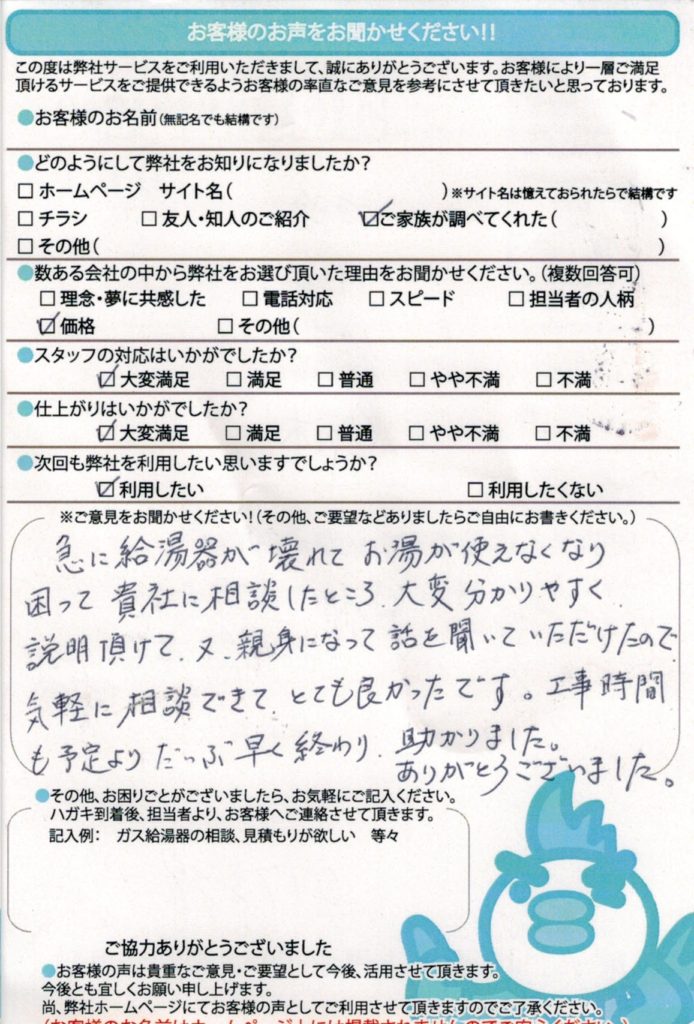 お客様のお声をお聞かせください!!
この度は弊社サービスをご利用いただきまして、誠にありがとうございます。お客様により一層ご満足
頂けるサービスをご提供できるようお客様の率直なご意見を参考にさせて頂きたいと思っております。
●お客様のお名前(無記名でも結構です)
●どのようにして弊社をお知りになりましたか?
□ホームページ サイト名( )※サイト名は憶えておられたらで結構です
□チラシ □友人・知人のご紹介 ☑ご家族が調べてくれた( )
□その他( )
●数ある会社の中から弊社をお選び頂いた理由をお聞かせください。(複数回答可)
□理念・夢に共感した □電話対応 □スピード □担当者の人柄
☑価格 □その他( )
●スタッフの対応はいかがでしたか?
☑大変満足 □満足 □普通 □やや不満 □不満
●仕上がりはいかがでしたか?
☑大変満足 □満足 □普通 □やや不満 □不満
●次回も弊社を利用したい思いますでしょうか?
☑利用したい □利用したくない
※ご意見をお聞かせください!(その他、ご要望などありましたらご自由にお書きください。)
急に給湯器が壊れてお湯が使えなくなり
困って貴社に相談したところ、大変分かりやすく
説明頂けて、又、親身になって話を聞いていただけたので
気軽に相談できて、とても良かったです。工事時間
も予定よりだいぶ早く終わり、助かりました。
ありがとうございました。
●その他、お困りごとがございましたら、お気軽にご記入ください。
ハガキ到着後、担当者より、お客様へご連絡させて頂きます。
記入例: ガス給湯器の相談、見積もりが欲しい 等々
ご協力ありがとうございました
●お客様の声は貴重なご意見・ご要望として今後、活用させて頂きます。
今後とも宜しくお願い申し上げます。
尚、弊社ホームページにてお客様の声としてご利用させて頂きますのでご了承ください。